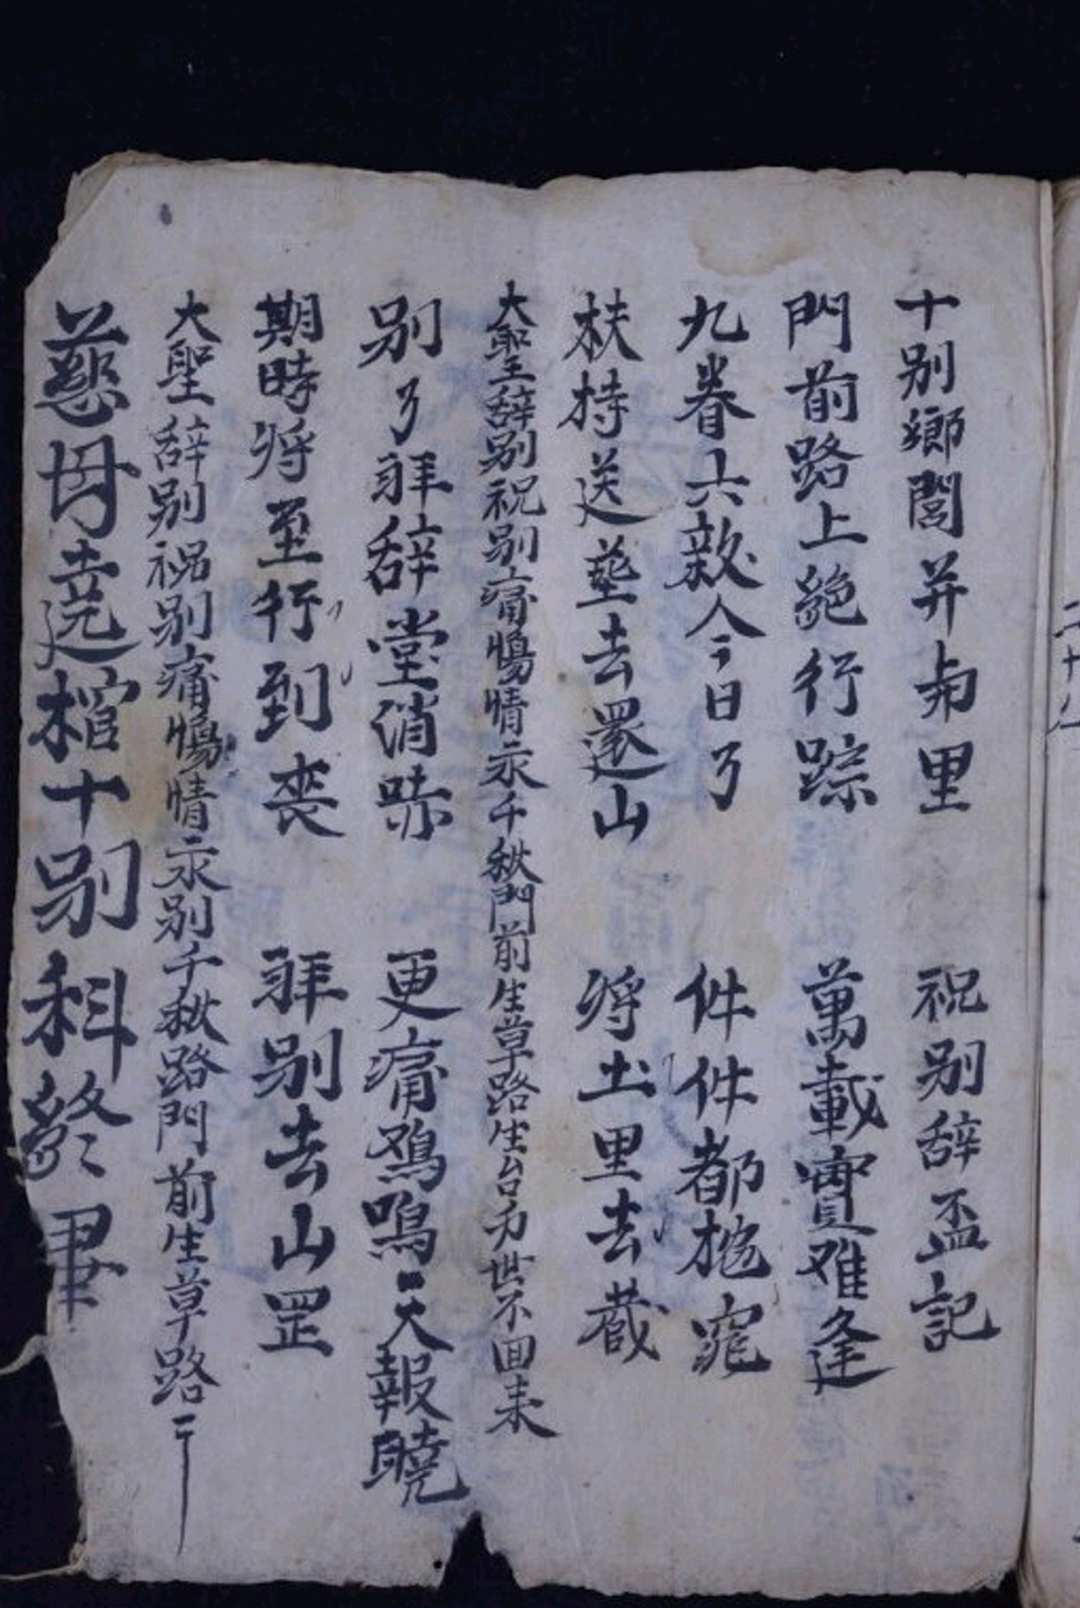 十别鄉閭并与里　祝别辞盃記
門前路上絕行踪　萬載實难逢
九眷六親今日了　件件都抛
扶持送塟去還山　将土里去藏
大聖辞别祝别痛傷情永千秋門前生草路生台万世不回来
别了拜辞堂消　更痛鳴天報曉
期時将至行到丧　拜别去山罡
大聖辞别祝别痛傷情永别千秋路門前生草路
慈母遶棺十别科終畢
二十八